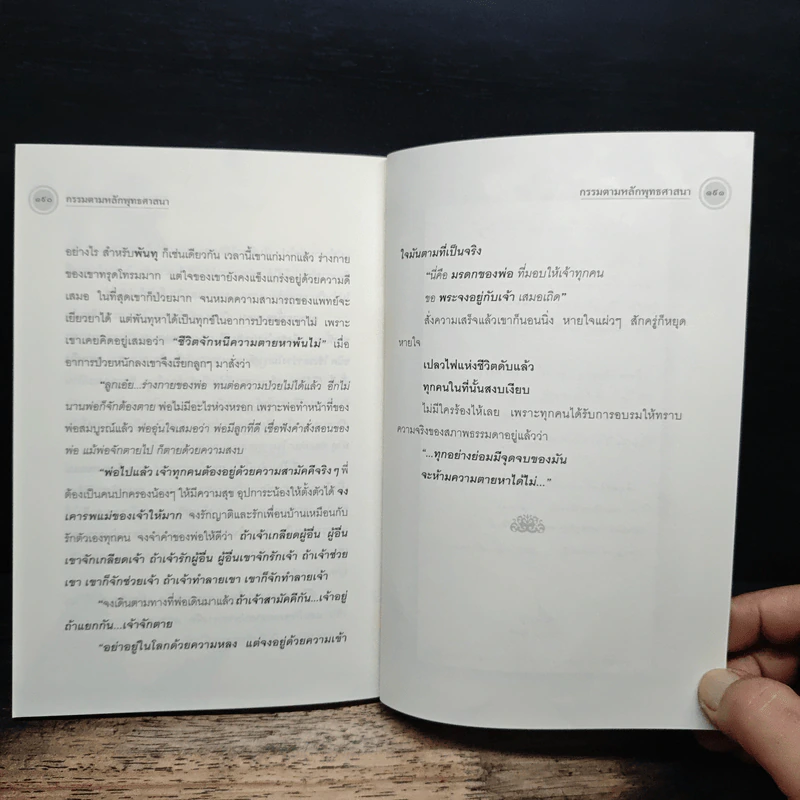 ๑๙๐ กรรมตามหลักพุทธศาสนา
อย่างไร สำหรับพันทุ ก็เช่นเดียวกัน เวลานี้เขาแก่มากแล้ว ร่างกาย
ของเขาทรุดโทรมมาก แต่ใจของเขายังคงแข็งแกร่งอยู่ด้วยความดี
เสมอ ในที่สุดเขาก็ป่วยมาก จนหมดความสามารถของแพทย์จะ
เยียวยาได้ แต่พันทุหาได้เป็นทุกข์ในอาการป่วยของเขาไม่ เพราะ
เขาเคยคิดอยู่เสมอว่า “ชีวิตจักหนีความตายหาพ้นไม่” เมื่อ
อาการป่วยหนักลงเขาจึงเรียกลูกๆ มาสั่งว่า
“ลูกเอ๋ย...ร่างกายของพ่อ ทนต่อความป่วยไม่ได้แล้ว อีกไม่
นานพ่อก็จักต้องตาย พ่อไม่มีอะไรห่วงหรอก เพราะพ่อทำหน้าที่ของ
พ่อสมบูรณ์แล้ว พ่ออุ่นใจเสมอว่า พ่อมีลูกที่ดี เชื่อฟังคำสั่งสอนของ
พ่อ แม้พ่อจักตายไป ก็ตายด้วยความสงบ
“พ่อไปแล้ว เจ้าทุกคนต้องอยู่ด้วยความสามัคคีจริงๆ พี่
ต้องเป็นคนปกครองน้องๆ ให้มีความสุข อุปการะน้องให้ตั้งตัวได้ จง
เคารพแม่ของเจ้าให้มาก จงรักญาติและรักเพื่อนบ้านเหมือนกับ
รักตัวเองทุกคน จงจำคำของพ่อให้ดีว่า ถ้าเจ้าเกลียดผู้อื่น ผู้อื่น
เขาจักเกลียดเจ้า ถ้าเจ้ารักผู้อื่น ผู้อื่นเขาจักรักเจ้า ถ้าเจ้าช่วย
เขา เขาก็จักช่วยเจ้า ถ้าเจ้าทำลายเขา เขาก็จักทำลายเจ้า
“จงเดินตามทางที่พ่อเดินมาแล้ว ถ้าเจ้าสามัคคีกัน...เจ้าอยู่
ถ้าแยกกัน...เจ้าจักตาย
“อย่าอยู่ในโลกด้วยความหลง แต่จงอยู่ด้วยความเข้า
กรรมตามหลักพุทธศาสนา ๑๙๑
ใจมันตามที่เป็นจริง
“นี่คือ มรดกของพ่อ ที่มอบให้เจ้าทุกคน
ขอ พระจงอยู่กับเจ้า เสมอเถิด”
สั่งความเสร็จแล้วเขาก็นอนนิ่ง หายใจแผ่วๆ สักครู่ก็หยุด
หายใจ
เปลวไฟแห่งชีวิตดับแล้ว
ทุกคนในที่นั้นสงบเงียบ
ไม่มีใครร้องไห้เลย เพราะทุกคนได้รับการอบรมให้ทราบ
ความจริงของสภาพธรรมดาอยู่แล้วว่า
“...ทุกอย่างย่อมมีจุดจบของมัน
จะห้ามความตายหาได้ไม่...”